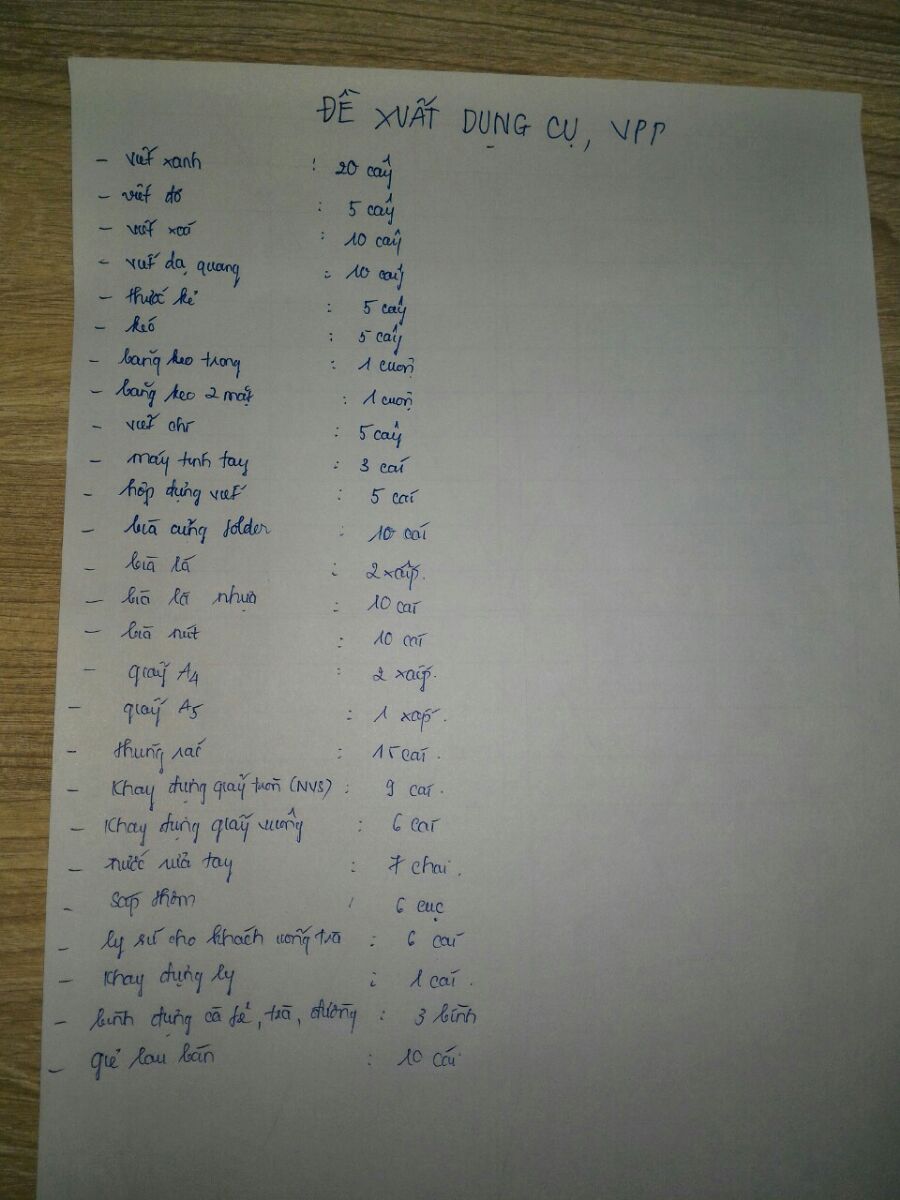 ĐỀ XUẤT DỤNG CỤ, VPP
- viết xanh : 20 cây
- viết đỏ : 5 cây
- viết xoá : 10 cây
- viết dạ quang : 10 cây
- thước kẻ : 5 cây
- kéo : 5 cây
- băng keo trong : 1 cuộn
- băng keo 2 mặt : 1 cuộn
- viết chì : 5 cây
- máy tính tay : 3 cái
- hộp đựng viết : 5 cái
- bìa cứng folder : 10 cái
- bìa lá : 2 xấp.
- bìa lá nhựa : 10 cái
- bìa nút : 10 cái
- giấy A4 : 2 xấp.
- giấy A5 : 1 xấp.
- thùng rác : 15 cái.
- Khay đựng giấy tròn (NVS) : 9 cái.
- Khay đựng giấy vuông : 6 cái
- nước rửa tay : 7 chai.
- Sáp thơm : 6 cục
- ly sứ cho khách uống trà : 6 cái
- Khay đựng ly : 1 cái.
- bình đựng cà fê, trà, đường : 3 bình
- giẻ lau bàn : 10 cái